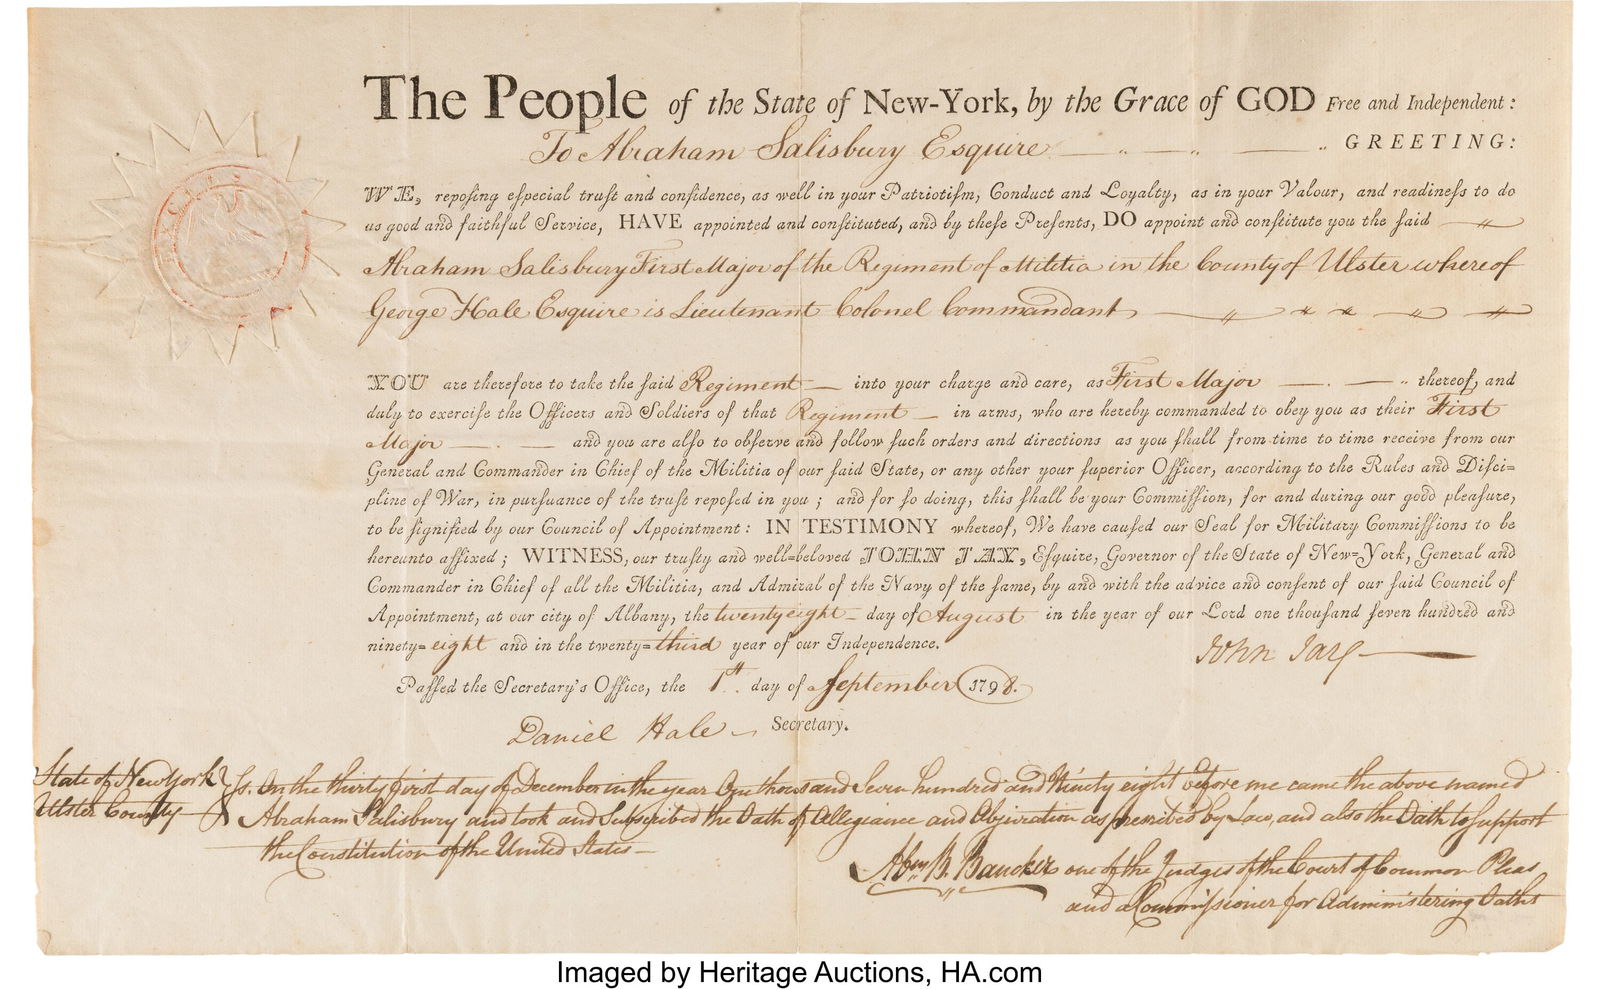 The People of the State of New-York, by the Grace of GOD Free and Independent:
To Abraham Salisbury Esquire GREETING:
WE, reposing eſpecial truſt and confidence, as well in your Patriotiſm, Conduct and Loyalty, as in your Valour, and readineſs to do
us good and faithful Service, HAVE appointed and conſtituted, and by theſe Preſents, DO appoint and conſtitute you the ſaid
Abraham Salisbury First Major of the Regiment of Militia in the County of Ulster whereof
George Hale Esquire is Lieutenant Colonel Commandant
YOU are therefore to take the ſaid Regiment into your charge and care, as First Major thereof, and
duly to exerciſe the Officers and Soldiers of that Regiment in arms, who are hereby commanded to obey you as their First
Major and you are alſo to obſerve and follow ſuch orders and directions as you ſhall from time to time receive from our
General and Commander in Chief of the Militia of our ſaid State, or any other your ſuperior Officer, according to the Rules and Diſci=
pline of War, in purſuance of the truſt repoſed in you; and for ſo doing, this ſhall be your Commiſſion, for and during our good pleaſure,
to be ſignified by our Council of Appointment: IN TESTIMONY whereof, We have cauſed our Seal for Military Commiſſions to be
hereunto affixed; WITNESS, our truſty and well=beloved JOHN JAY, Eſquire, Governor of the State of New=York, General and
Commander in Chief of all the Militia, and Admiral of the Navy of the ſame, by and with the advice and conſent of our ſaid Council of
Appointment, at our city of Albany, the twenty eight day of August in the year of our Lord one thouſand ſeven hundred and
ninety= eight and in the twenty= third year of our Independence.
John Jay
Paſſed the Secretary's Office, the 1st day of September 1798.
Daniel Hale Secretary.
State of New York Ss. On the thirty first day of December in the year One thousand Seven hundred and Ninety eight before me came the above named
Ulster County Abraham Salisbury and took and Subscribed the Oath of Allegiance and Abjuration as prescribed by Law, and also the Oath to support
the Constitution of the United States
B. Bancker one of the Judges of the Court of Common Pleas
and a Commiſsioner for Administering Oaths
Imaged by Heritage Auctions, HA.com